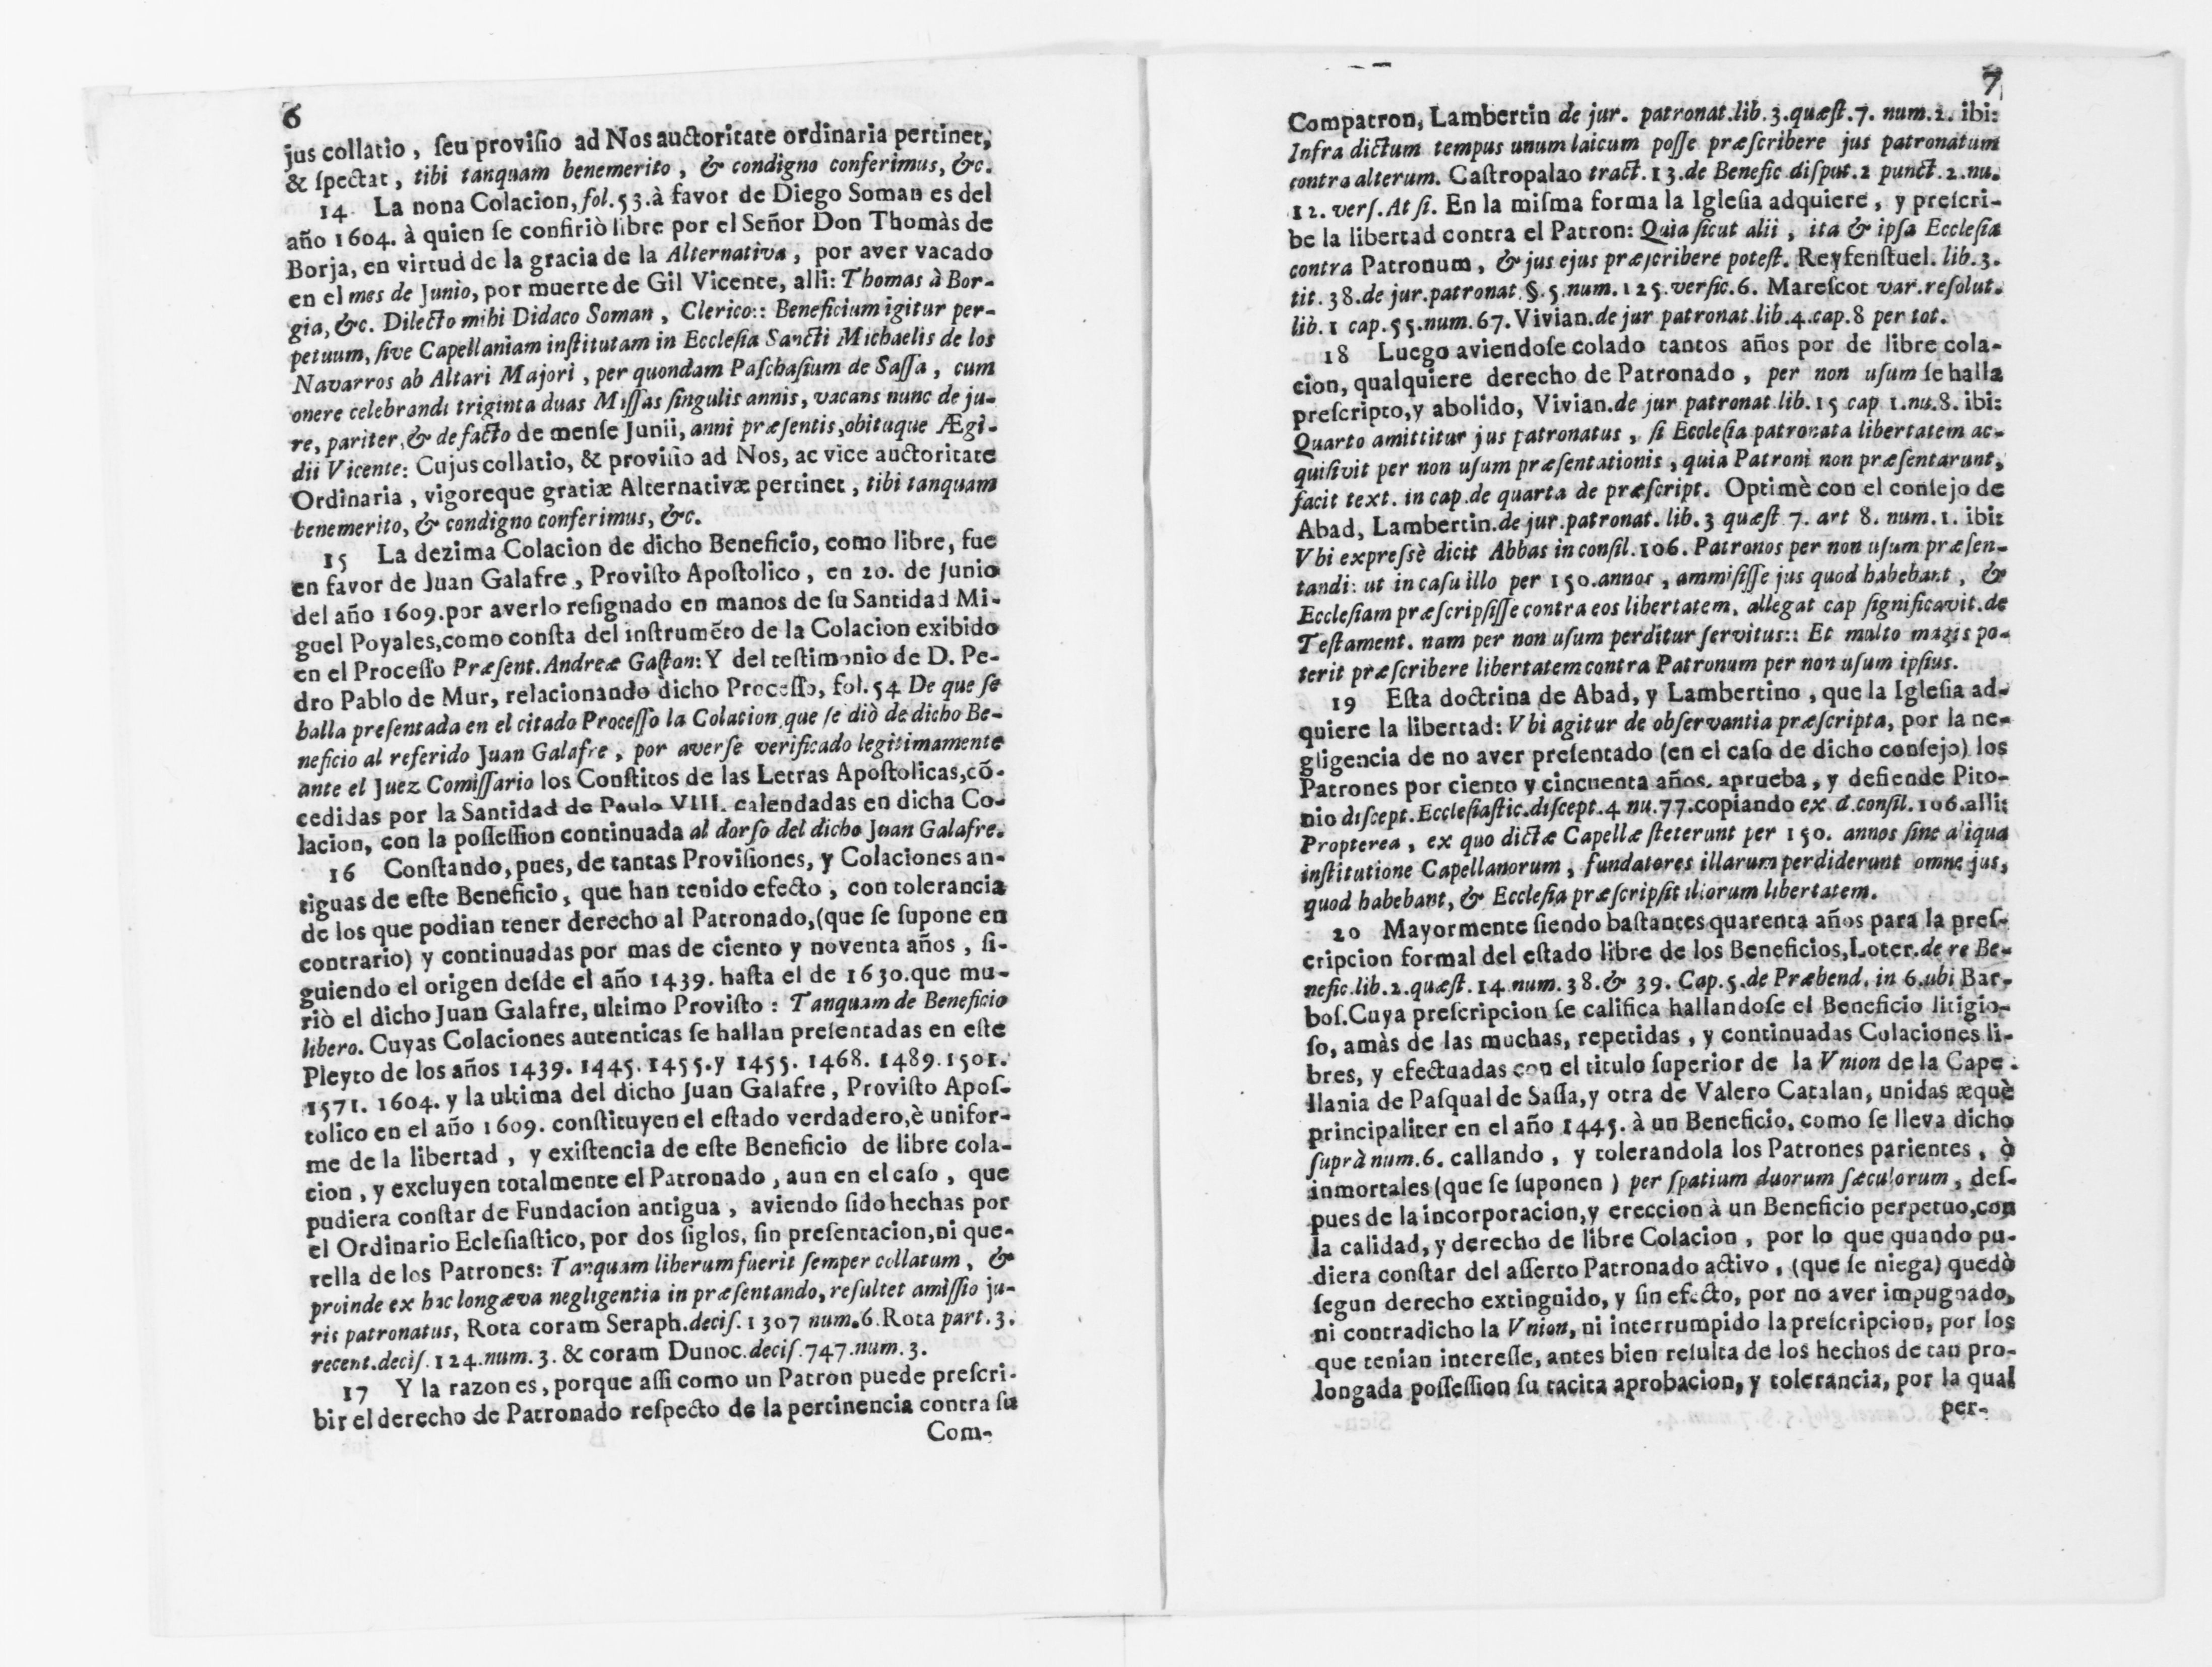 6
jus collatio, ſeu proviſio ad Nos auctoritate ordinaria pertinet,
& ſpectat, tibi tanquam benemerito, & condigno conferimus, &c.
14 La nona Colacion, fol. 53. à favor de Diego Soman es del
año 1604. à quien ſe confiriò libre por el Señor Don Thomàs de
Borja, en virtud de la gracia de la Alternativa, por aver vacado
en el mes de Junio, por muerte de Gil Vicente, alli: Thomas à Bor-
gia, &c. Dilecto mihi Didaco Soman, Clerico:: Beneficium igitur per-
petuum, ſive Capellaniam inſtitutam in Eccleſia Sancti Michaelis de los
Navarros ab Altari Majori, per quondam Paſchaſium de Saſſa, cum
onere celebrandi triginta duas Miſſas ſingulis annis, vacans nunc de ju-
re, pariter, & de facto de menſe Junii, anni præſentis, obituque Ægi-
dii Vicente: Cujus collatio, & proviſio ad Nos, ac vice auctoritate
Ordinaria, vigoreque gratiæ Alternativæ pertinet, tibi tanquam
benemerito, & condigno conferimus, &c.
15 La dezima Colacion de dicho Beneficio, como libre, fue
en favor de Juan Galafre, Proviſto Apoſtolico, en 20. de Junio
del año 1609. por averlo reſignado en manos de ſu Santidad Mi-
guel Poyales, como conſta del inſtrumẽto de la Colacion exibido
en el Proceſſo Præſent. Andreæ Gaſton: Y del teſtimonio de D. Pe-
dro Pablo de Mur, relacionando dicho Proceſſo, fol. 54 De que ſe
halla preſentada en el citado Proceſſo la Colacion que ſe diò de dicho Be-
neficio al referido Juan Galafre, por averſe verificado legitimamente
ante el Juez Comiſſario los Conſtitos de las Letras Apoſtolicas, cõ-
cedidas por la Santidad de Paulo VIII. calendadas en dicha Co-
lacion, con la poſſeſſion continuada al dorſo del dicho Juan Galafre.
16 Conſtando, pues, de tantas Proviſiones, y Colaciones an-
tiguas de eſte Beneficio, que han tenido efecto, con tolerancia
de los que podian tener derecho al Patronado, (que ſe ſupone en
contrario) y continuadas por mas de ciento y noventa años, ſi-
guiendo el origen deſde el año 1439. haſta el de 1630. que mu-
riò el dicho Juan Galafre, ultimo Proviſto: Tanquam de Beneficio
libero. Cuyas Colaciones autenticas ſe hallan preſentadas en eſte
Pleyto de los años 1439. 1445. 1455. y 1455. 1468. 1489. 1501.
1571. 1604. y la ultima del dicho Juan Galafre, Proviſto Apoſ-
tolico en el año 1609. conſtituyen el eſtado verdadero, è unifor-
me de la libertad, y exiſtencia de eſte Beneficio de libre cola-
cion, y excluyen totalmente el Patronado, aun en el caſo, que
pudiera conſtar de Fundacion antigua, aviendo ſido hechas por
el Ordinario Ecleſiaſtico, por dos ſiglos, ſin preſentacion, ni que-
rella de los Patrones: Tanquam liberum fuerit ſemper collatum, &
proinde ex hac longæva negligentia in præſentando, reſultet amiſſio ju-
ris patronatus, Rota coram Seraph. deciſ. 1307 num. 6. Rota part. 3.
recent. deciſ. 124. num. 3. & coram Dunoc. deciſ. 747. num. 3.
17 Y la razon es, porque aſſi como un Patron puede preſcri-
bir el derecho de Patronado reſpecto de la pertinencia contra ſu
Com-
7
Compatron, Lambertin de jur. patronat. lib. 3. quæſt. 7. num. 2. ibi:
Infra dictum tempus unum laicum poſſe præſcribere jus patronatum
contra alterum. Caſtropalao tract. 13. de Benefic. diſput. 2 punct. 2. nu.
12. verſ. At ſi. En la miſma forma la Igleſia adquiere, y preſcri-
be la libertad contra el Patron: Quia ſicut alii, ita & ipſa Eccleſia
contra Patronum, & jus ejus præſcribere poteſt. Reyfenſtuel. lib. 3.
tit. 38. de jur. patronat. §. 5. num. 125. verſic. 6. Mareſcot var. reſolut.
lib. 1 cap. 55. num. 67. Vivian. de jur patronat. lib. 4. cap. 8 per tot.
18 Luego aviendoſe colado tantos años por de libre cola-
cion, qualquiere derecho de Patronado, per non uſum ſe halla
preſcripto, y abolido, Vivian. de jur patronat. lib. 15 cap 1. nu. 8. ibi:
Quarto amittitur jus patronatus, ſi Eccleſia patronata libertatem ac-
quiſivit per non uſum præſentationis, quia Patroni non præſentarunt,
facit text. in cap. de quarta de præſcript. Optimè con el conſejo de
Abad, Lambertin. de jur. patronat. lib. 3 quæſt 7. art 8. num. 1. ibi:
Vbi expreſsè dicit Abbas in conſil. 106. Patronos per non uſum præſen-
tandi: ut in caſu illo per 150. annos, ammiſiſſe jus quod habebant, &
Eccleſiam præſcripſiſſe contra eos libertatem, allegat cap ſignificavit. de
Teſtament. nam per non uſum perditur ſervitus:: Et multo magis po-
terit præſcribere libertatem contra Patronum per non uſum ipſius.
19 Eſta doctrina de Abad, y Lambertino, que la Igleſia ad-
quiere la libertad: Vbi agitur de obſervantia præſcripta, por la ne-
gligencia de no aver preſentado (en el caſo de dicho conſejo) los
Patrones por ciento y cincuenta años. aprueba, y defiende Pito-
nio diſcept. Eccleſiaſtic. diſcept. 4 nu. 77. copiando ex d. conſil. 106. alli:
Propterea, ex quo dictæ Capellæ ſteterunt per 150. annos ſine aliqua
inſtitutione Capellanorum, fundatores illarum perdiderunt omne jus,
quod habebant, & Eccleſia præſcripſit illorum libertatem.
20 Mayormente ſiendo baſtantes quarenta años para la preſ-
cripcion formal del eſtado libre de los Beneficios, Loter. de re Be-
nefic. lib. 2. quæſt. 14. num. 38. & 39. Cap. 5. de Præbend. in 6. ubi Bar-
boſ. Cuya preſcripcion ſe califica hallandoſe el Beneficio litigio-
ſo, amàs de las muchas, repetidas, y continuadas Colaciones li-
bres, y efectuadas con el titulo ſuperior de la Vnion de la Cape-
llania de Paſqual de Saſſa, y otra de Valero Catalan, unidas æquè
principaliter en el año 1445. à un Beneficio, como ſe lleva dicho
ſuprà num. 6. callando, y tolerandola los Patrones parientes, ò
inmortales (que ſe ſuponen) per ſpatium duorum ſæculorum, deſ-
pues de la incorporacion, y ereccion à un Beneficio perpetuo, con
la calidad, y derecho de libre Colacion, por lo que quando pu-
diera conſtar del aſſerto Patronado activo, (que ſe niega) quedò
ſegun derecho extinguido, y ſin efecto, por no aver impugnado,
ni contradicho la Vnion, ni interrumpido la preſcripcion, por los
que tenian intereſſe, antes bien reſulta de los hechos de tan pro-
longada poſſeſſion ſu tacita aprobacion, y tolerancia, por la qual
per-